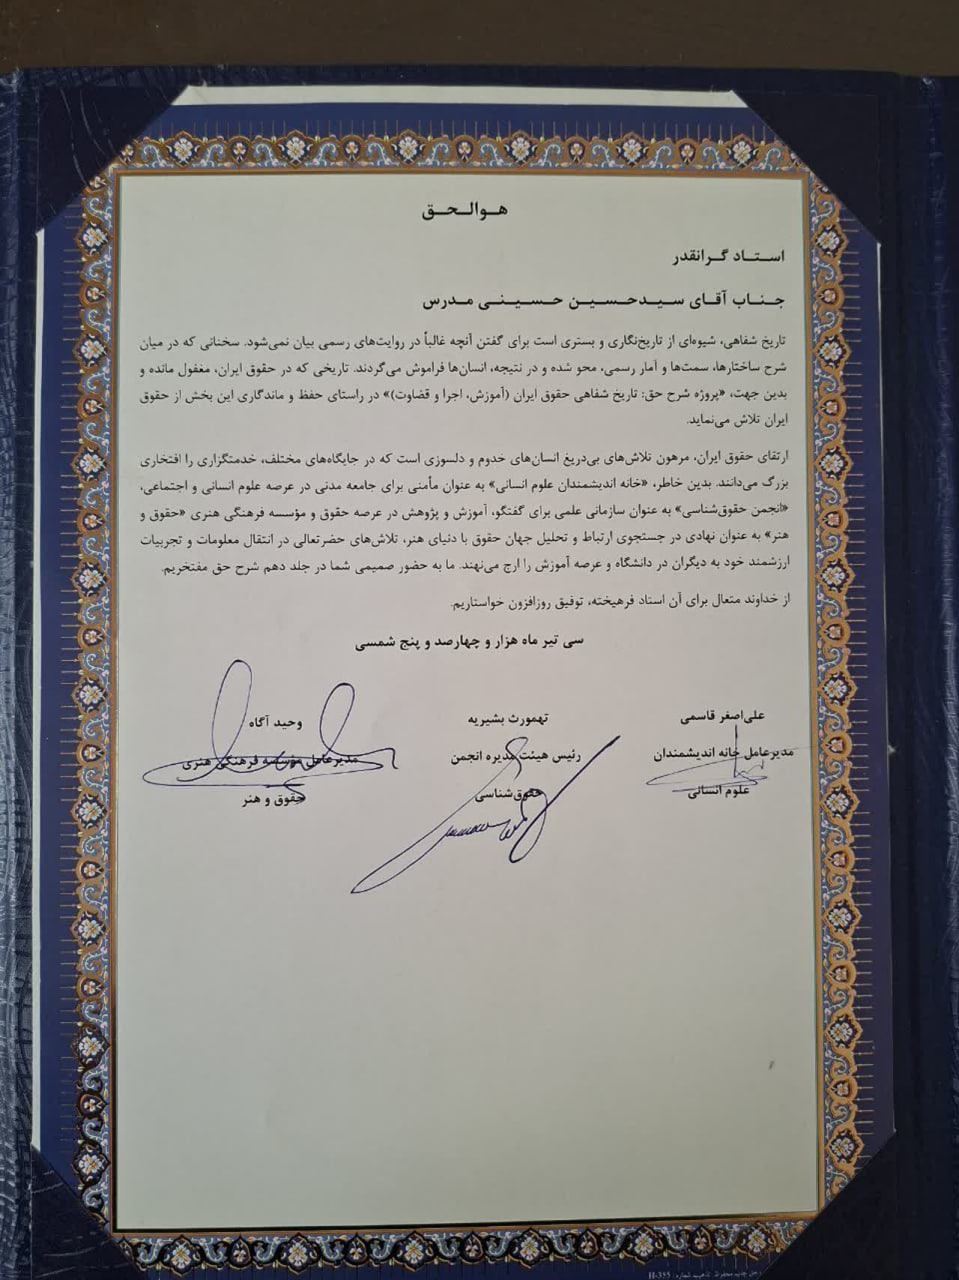 هوالحق
استاد گرانقدر
جناب آقای سیدحسین حسینی مدرس
تاریخ شفاهی، شیوه‌ای از تاریخ‌نگاری و بستری است برای گفتن آنچه غالباً در روایت‌های رسمی بیان نمی‌شود. سخنانی که در میان
شرح ساختارها، سمت‌ها و آمار رسمی، محو شده و در نتیجه، انسان‌ها فراموش می‌گردند. تاریخی که در حقوق ایران، مغفول مانده و
بدین جهت، «پروژه شرح حق: تاریخ شفاهی حقوق ایران (آموزش، اجرا و قضاوت)» در راستای حفظ و ماندگاری این بخش از حقوق
ایران تلاش می‌نماید.
ارتقای حقوق ایران، مرهون تلاش‌های بی‌دریغ انسان‌های خدوم و دلسوزی است که در جایگاه‌های مختلف، خدمتگزاری را افتخاری
بزرگ می‌دانند. بدین خاطر، «خانه اندیشمندان علوم انسانی» به عنوان مأمنی برای جامعه مدنی در عرصه علوم انسانی و اجتماعی،
«انجمن حقوق‌شناسی» به عنوان سازمانی علمی برای گفتگو، آموزش و پژوهش در عرصه حقوق و مؤسسه فرهنگی هنری «حقوق و
هنر» به عنوان نهادی در جستجوی ارتباط و تحلیل جهان حقوق با دنیای هنر، تلاش‌های حضرتعالی در انتقال معلومات و تجربیات
ارزشمند خود به دیگران در دانشگاه و عرصه آموزش را ارج می‌نهند. ما به حضور صمیمی شما در جلد دهم شرح حق مفتخریم.
از خداوند متعال برای آن استاد فرهیخته، توفیق روزافزون خواستاریم.
سی تیر ماه هزار و چهارصد و پنج شمسی
علی‌اصغر قاسمی
مدیرعامل خانه اندیشمندان
علوم انسانی
تهمورث بشیریه
رئیس هیئت مدیره انجمن
حقوق‌شناسی
وحید آگاه
مدیرعامل مؤسسه فرهنگی هنری
حقوق و هنر
H-355